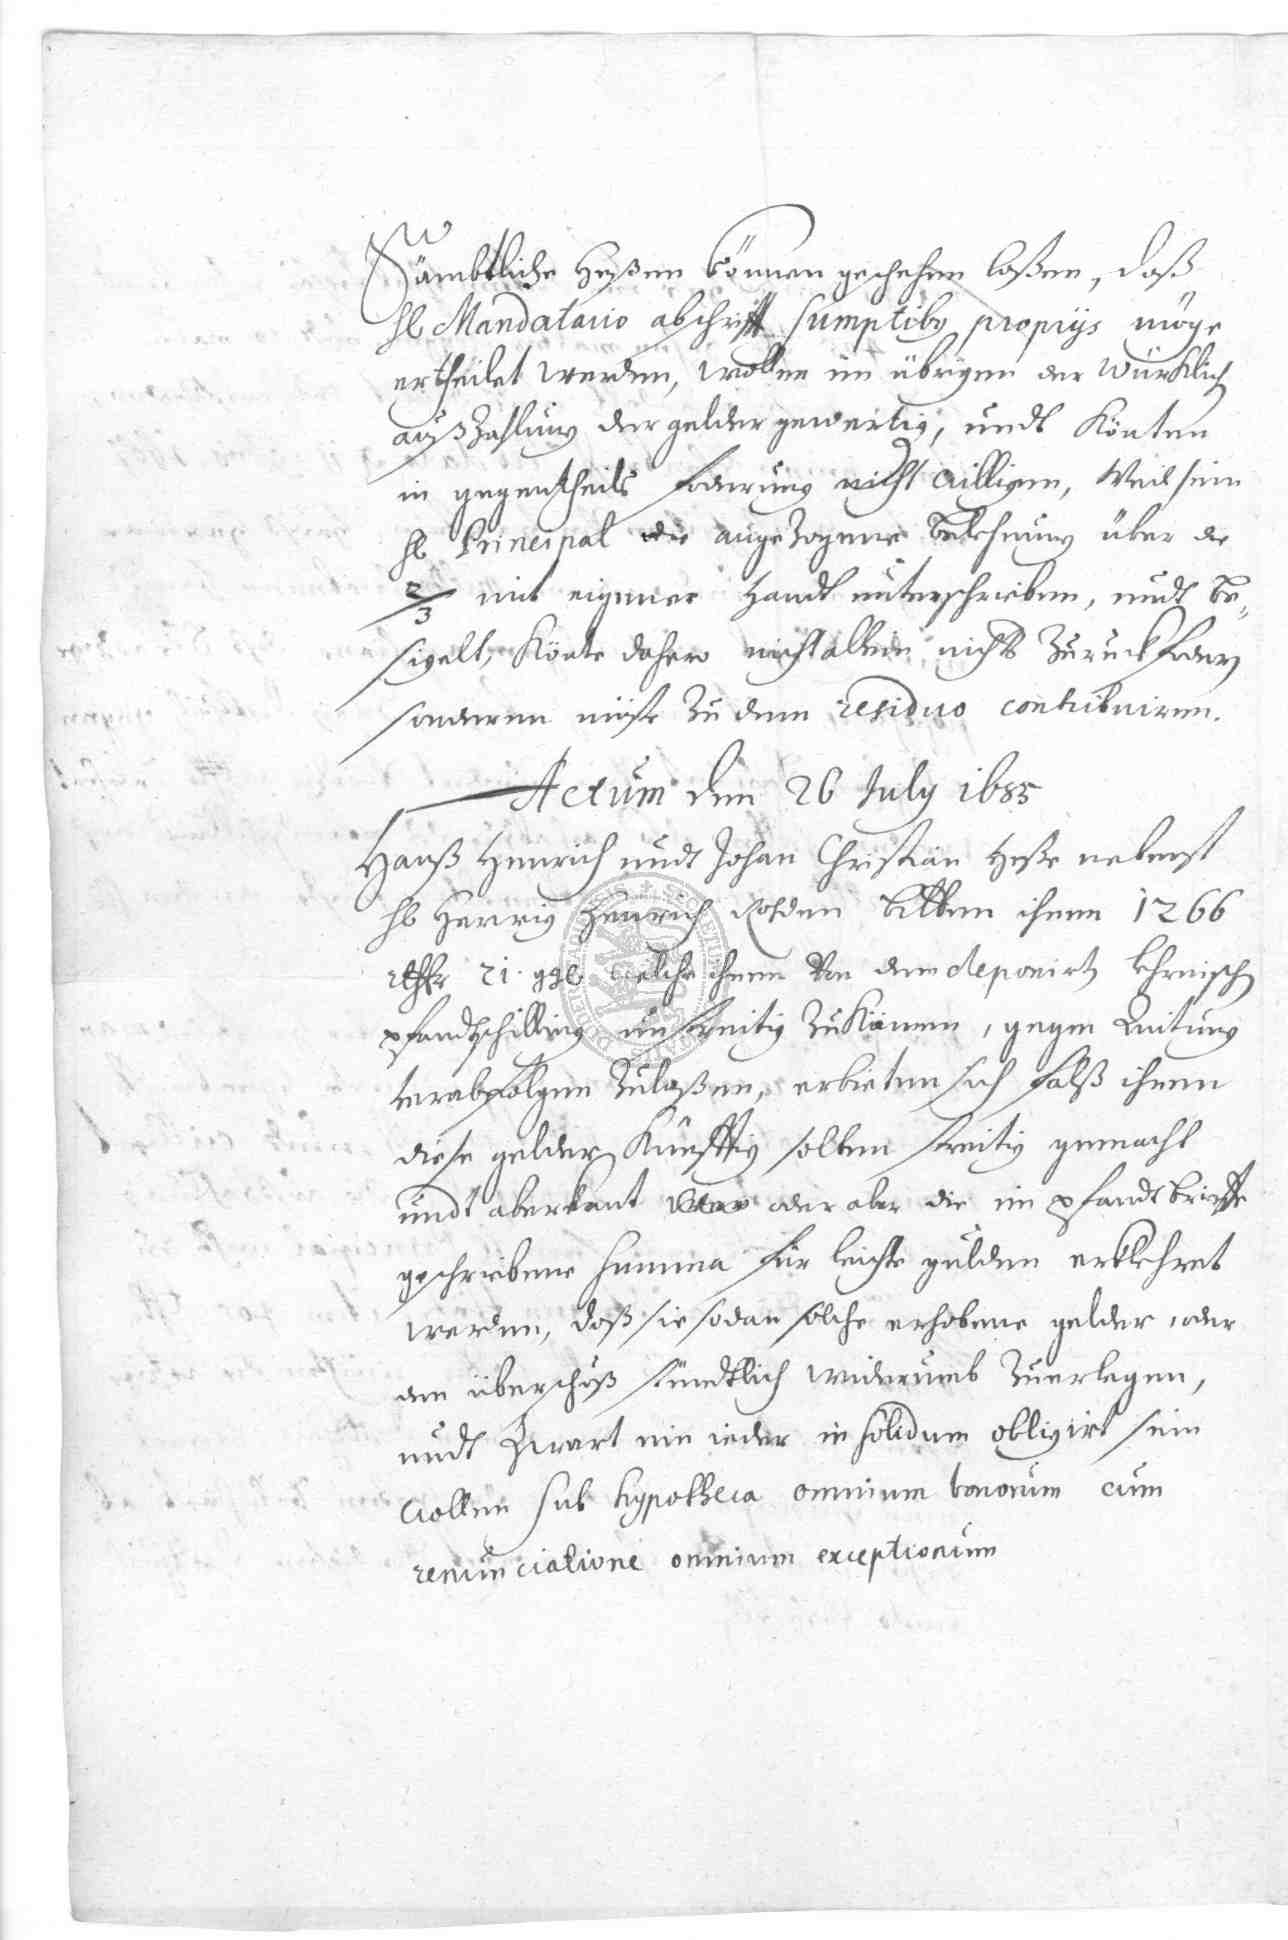 Sämbtliche Heßen können geschehen laßen, daß
H. Mandatario abschrifft sumptibus proprijs möge
ertheilet werden, wollen im übrigen der würcklich
außzahlung der gelder gewertig, undt Könten
in gegentheils foderung nicht willigen, Weil sein
H. Principal die angezogene belehnung über die
2/3 mit eigener Handt unterschrieben, undt be¬
sigelt, Könte dahero nicht allein nichts Zuruck fodern
sonderen müste Zu dem residuo contribuiren.
Actum den 26 July 1685
Hanß Henrich undt Johan Christian Heße nebenst
H. Henrich bitten ihnen 1266
rthlr 21 ggl welche ihnen Von dem deponirten
pfandtschilling unstreitig Zukämen, gegen Quitung
verabfolgen Zulaßen, erbieten sich falß ihnen
diese gelder Künfftig solten streitig gemacht
undt aberkant oder aber die im pfandtbrieffe
geschriebene summa für leichte gulden erklehret
werden, daß sie sodan solche erhobene gelder, oder
den überschuß wiederumb Zuerlegen,
undt Zwart ein ieder in solidum obligirt sein
wollen sub hypotheca omnium bonorum cum
renunciatione omnium exceptionum